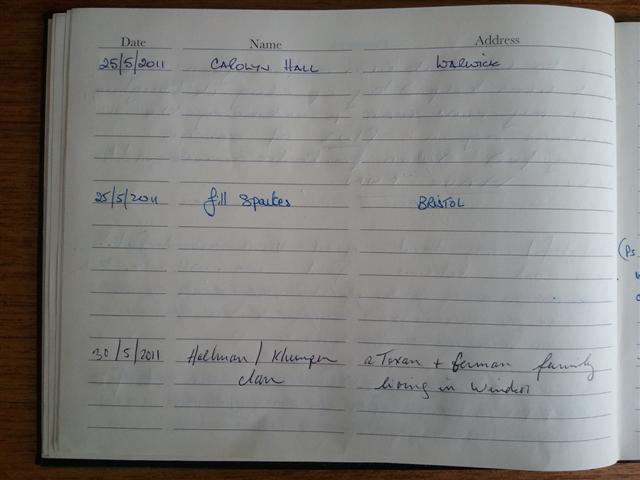 Date Name Address
25/5/2011 CAROLYN HALL WARWICK
25/5/2011 Jill Sparkes BRISTOL
(Ps
30/5/2011 Hallman / Klumper a Texan + German family
clan living in Windsor